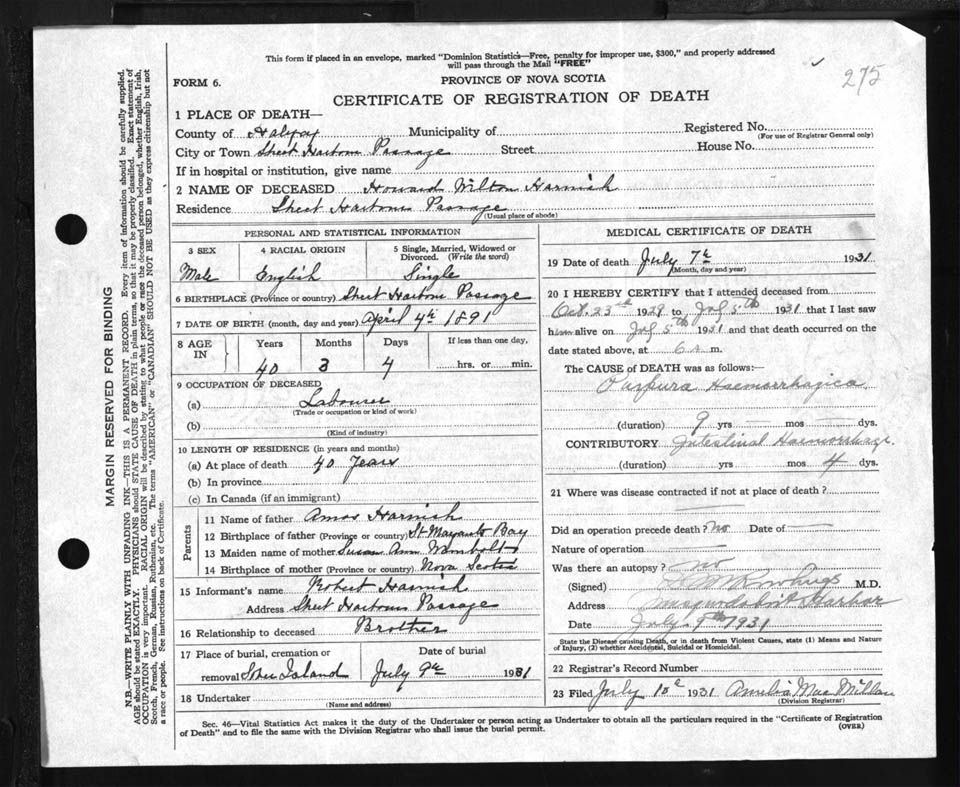 This form if placed in an envelope, marked "Dominion Statistics—Free, penalty for improper use, $300," and properly addressed
will pass through the Mail "FREE"
275
FORM 6.
PROVINCE OF NOVA SCOTIA
CERTIFICATE OF REGISTRATION OF DEATH
1 PLACE OF DEATH—
County of Halifax Municipality of Registered No.
(For use of Registrar General only)
City or Town Sheet Harbour Passage Street House No.
If in hospital or institution, give name
2 NAME OF DECEASED Howard Wilton Harnish
Residence Sheet Harbour Passage
(Usual place of abode)
PERSONAL AND STATISTICAL INFORMATION
3 SEX 4 RACIAL ORIGIN 5 Single, Married, Widowed or
Divorced. (Write the word)
Male English Single
6 BIRTHPLACE (Province or country) Sheet Harbour Passage
7 DATE OF BIRTH (month, day and year) April 4th 1891
8 AGE IN Years Months Days If less than one day,
40 3 4 hrs. or min.
9 OCCUPATION OF DECEASED
(a) Labourer
(Trade or occupation or kind of work)
(b)
(Kind of industry)
10 LENGTH OF RESIDENCE (in years and months)
(a) At place of death 40 Years
(b) In province
(c) In Canada (if an immigrant)
Parents
11 Name of father Amos Harnish
12 Birthplace of father (Province or country) St Margarets Bay
13 Maiden name of mother Susan Ann Wambolt
14 Birthplace of mother (Province or country) Nova Scotia
15 Informant's name Robert Harnish
Address Sheet Harbour Passage
16 Relationship to deceased Brother
17 Place of burial, cremation or Date of burial
removal Island July 9th 1931
18 Undertaker
(Name and address)
MEDICAL CERTIFICATE OF DEATH
19 Date of death July 7th 1931
(Month, day and year)
20 I HEREBY CERTIFY that I attended deceased from
Oct. 23rd 1929 to July 5th 1931 that I last saw
him alive on July 5th 1931 and that death occurred on the
date stated above, at 6 a m.
The CAUSE of DEATH was as follows:—
Purpura Haemorrhagica
(duration) 9 yrs — mos — dys.
CONTRIBUTORY Intestinal Haemorrhage.
(duration) yrs mos 4 dys.
21 Where was disease contracted if not at place of death?
Did an operation precede death? no Date of —
Nature of operation —
Was there an autopsy? no
(Signed) Rowlings M.D.
Address Musquodoboit Harbor
Date July 9th 1931
State the Disease causing Death, or in death from Violent Causes, state (1) Means and Nature
of Injury, (2) whether Accidental, Suicidal or Homicidal.
22 Registrar's Record Number
23 Filed July 10th 1931 Amelia MacMillan
(Division Registrar)
Sec. 46—Vital Statistics Act makes it the duty of the Undertaker or person acting as Undertaker to obtain all the particulars required in the "Certificate of Registration
of Death" and to file the same with the Division Registrar who shall issue the burial permit.
(OVER)
MARGIN RESERVED FOR BINDING
N.B.—WRITE PLAINLY WITH UNFADING INK—THIS IS A PERMANENT RECORD. Every item of information should be carefully supplied.
AGE should be stated EXACTLY. PHYSICIANS should STATE CAUSE OF DEATH in plain terms, so that it may be properly classified. Exact statement of
OCCUPATION is very important. RACIAL ORIGIN will be described by stating to what people or race the deceased person belonged, whether English, Irish,
Scotch, French, German, Russian, Ruthenian, etc. The terms "AMERICAN" or "CANADIAN" SHOULD NOT BE USED as they express citizenship but not
a race or people. See instructions on back of Certificate.